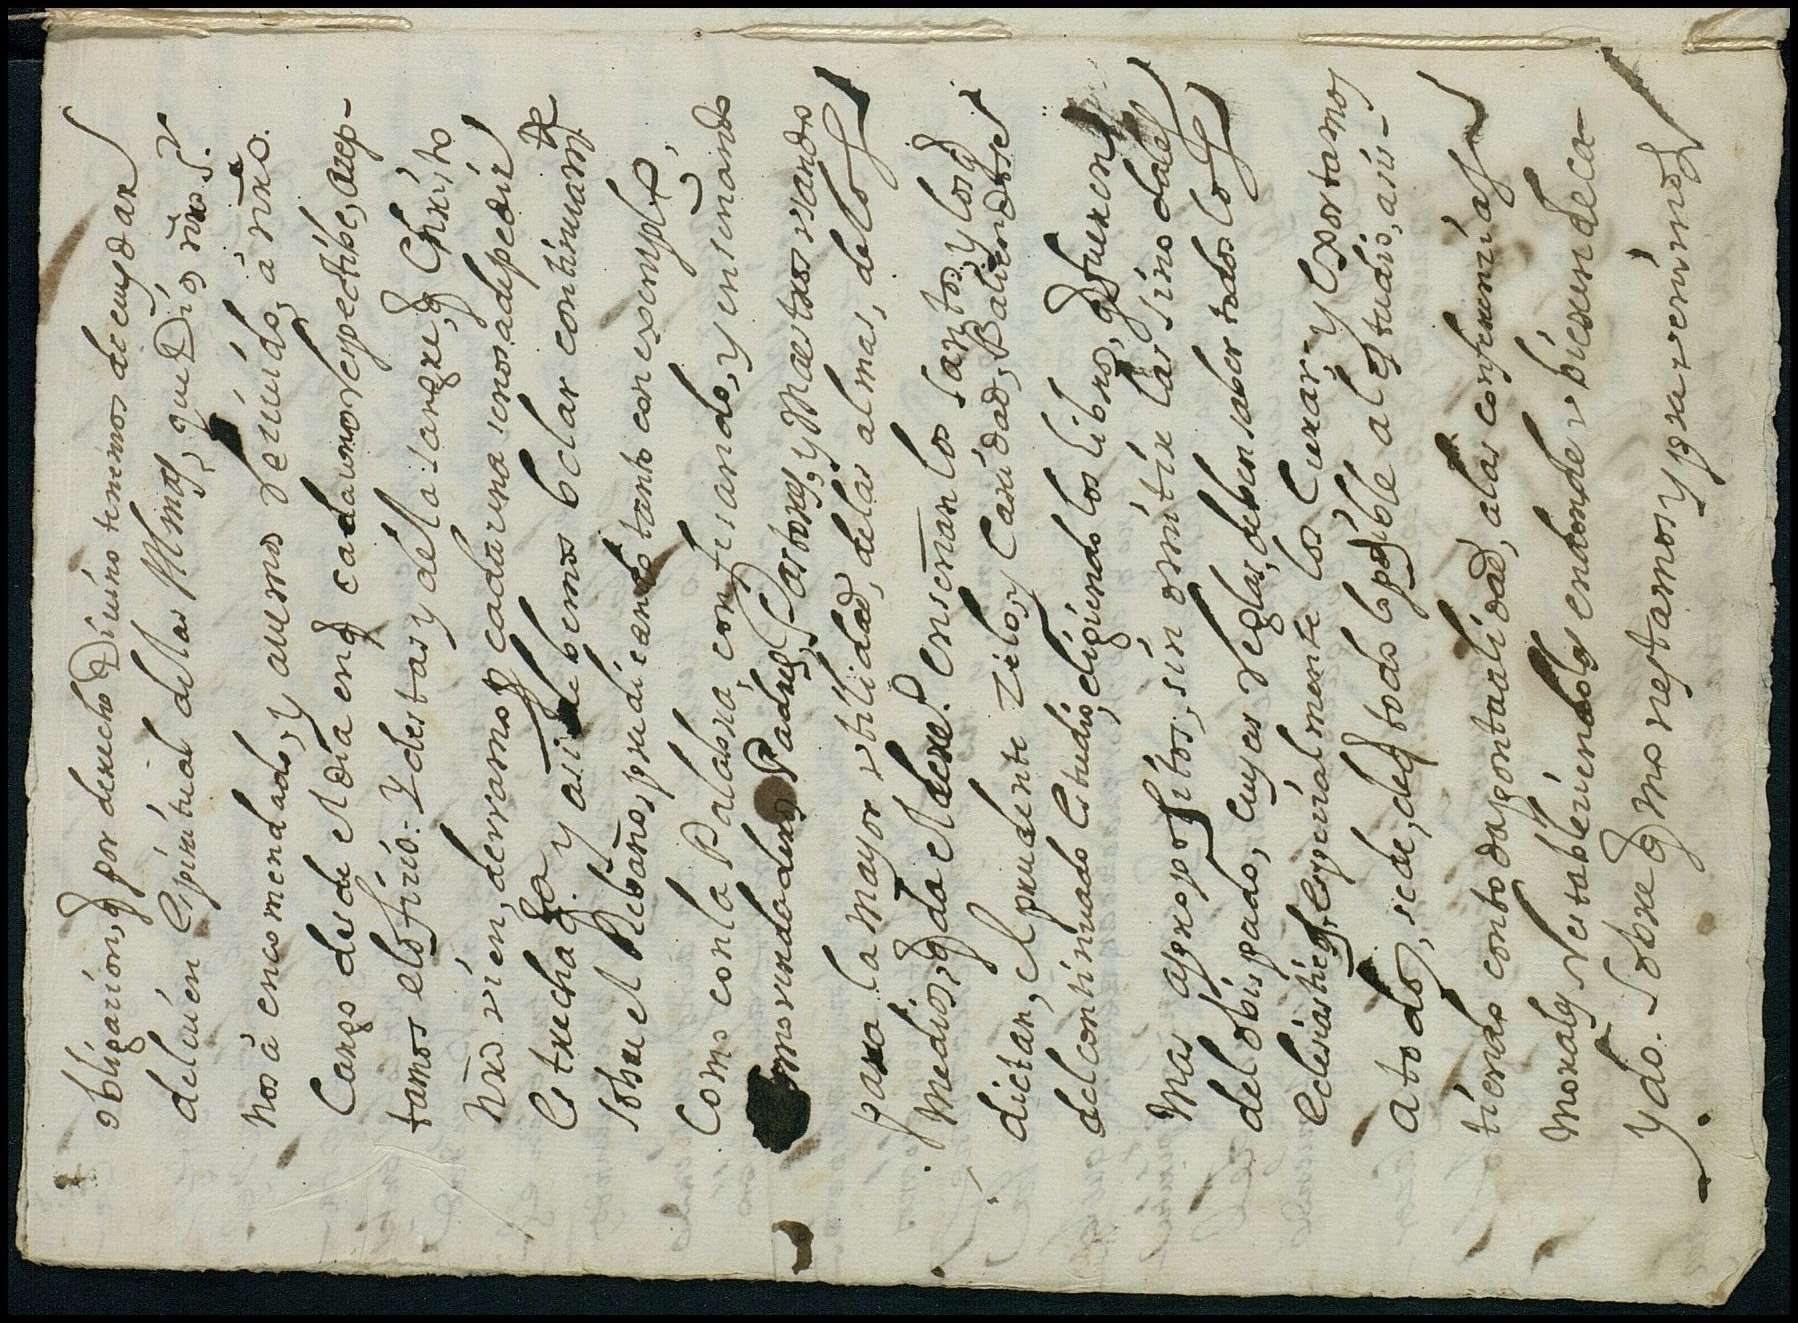 obligación, q̃ por derecho Divino tenemos de cuydar
del vien Espiritual de las Almas, que Dios nr̃o S.r
nos à encomendado, y auemos Seuido, à nr̃o
Cargo desde el dia en q̃ cada uno Respectibe, acep-
tamos el ofisio: Y destas y de la sangre, q̃ Christo
Nr̃o vien, derramo p.r cada una senos a de pedir
Estrecha q.ta y asi debemos belar continuam.te
sobre el Rebaño, predicando tanto con exemplo,
Como con la Palabra, confesando, y enseñando
como verdaderos Padres, Pastores, y Maestros usando
para la mayor utilidad, de las almas, de los
Medios, q̃ da el Dere.o Enseñan los santos, y los q̃
dictan, el prudente zelo, y Caridad, Baliendose
del continuado Estudio, eligiendo los libros, q̃ fueren
mas apropositos, sin omitir las sinodales
del obispado, cuyas Reglas, deben saber todos los
Eclesiasticos, Especialmente los Curas, y Exortamos
a todos, se de, del todo lo posible al estudio, asis-
tiendo con toda puntualidad, a las conferencias
Morales Restableciendolas en donde ubieren deca-
ydo. Sobre q̃ monestamos y prevenimos